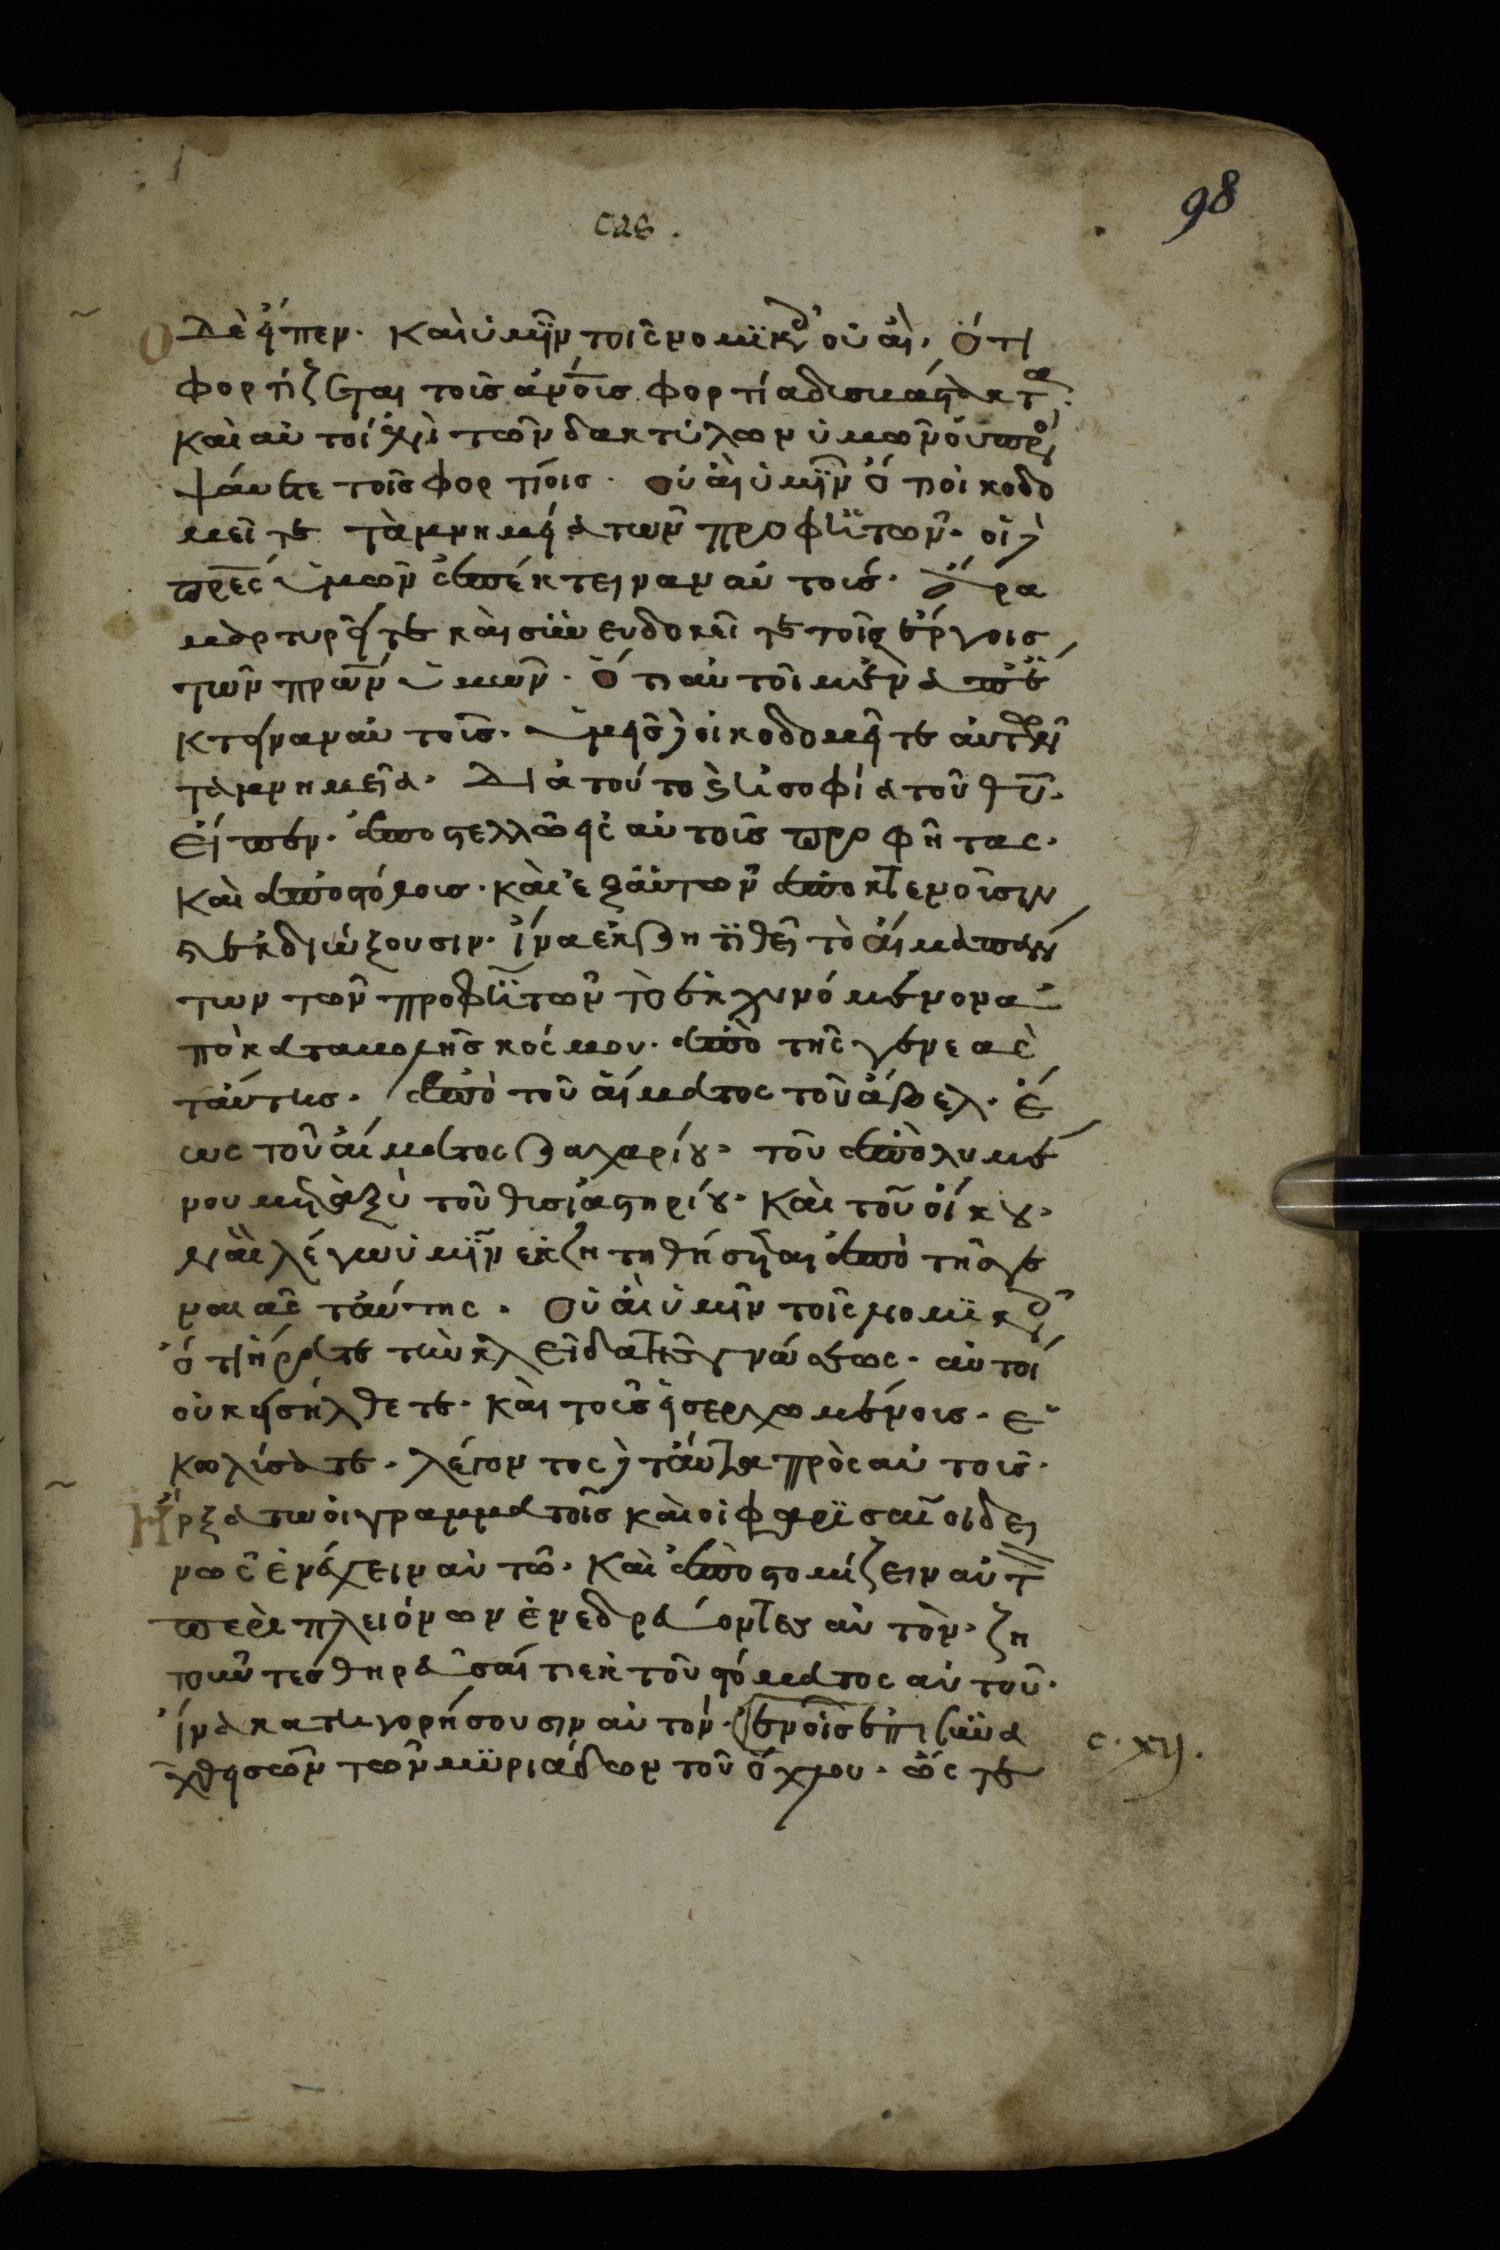 98
Ὁ δὲ εἶπεν. καὶ ὑμῖν τοῖς νομικοῖς οὐαί. ὅτι
φορτίζεται τοῖς ἀνοις φορτία δισβάστακτα.
καὶ αὐτοὶ ἐνὶ τῶν δακτύλων ὑμῶν οὐ προ
ψάυεται τοῖς φορτίοις. οὐαὶ ὑμῖν ὅτι οἰκοδο
μεῖτε τὰ μνημεῖα τῶν προφιτῶν. οἱ δὲ
πρες ὑμῶν ἀπέκτειναν αὐτούς. ἄρα
μαρτυρεῖτε καὶ συνευδοκεῖτε τοῖς ἔργοις
τῶν πρων ὑμῶν. ὅτι αὐτοὶ μὲν ἀπέ
κτειναν αὐτοῖς. ὑμεῖς δὲ οἰκοδομεῖτε αὐτῶν
τὰ μνημεῖα. Διὰ τοῦτο καὶ ἱ σοφία τοῦ θυ.
εἶπεν. ἀποστελλῶ εἰς αὐτοῖς προφήτας.
καὶ ἀποστόλοις. καὶ ἐξ αὐτῶν ἀποκτενοῖσιν
καὶ ἐκδιώξουσιν. ἵνα ἐκζητιθεῖ τὸ αἷμα πάν
των τῶν προφιτῶν τὸ ἐκχυνόμενον ἀ
πὸ καταβολῆς κόσμου. ἀπὸ τῆς γενεας
ταύτης. ἀπὸ τοῦ αἵματος τοῦ ἄβελ. ἕ
ως τοῦ αἵματος ζαχαρίου. τοῦ ἀπολυμέ
νου μεταξὺ τοῦ θισιαστηρίου. καὶ τοῦ οἴκου.
ναὶ λέγω ὑμῖν ἐκζητηθήσεται ἀπὸ τῆς γε
ναιᾶς ταύτης. Οὐαὶ ὑμῖν τοῖς νομικοῖς
ὅτι ἤρατε τὴν κλεῖδα τῆς γνώσεως. αὐτοί
οὐκ εἰσήλθετε. καὶ τοῖς εἰσερχωμένοις. ἐ
κωλίσατε. λέγοντος δὲ ταῦτα πρὸς αὐτοῖς.
Ἤρξατω οἱ γραμματοῖς καὶ οἱ φαρισαῖοι δει
νῶς ἐνέχειν αὐτῶ. καὶ ἀποστομίζειν αὐτ
περὶ πλειόνων ἐνεδρεύοντες αὐτὸν. ζη
τοῦντες θηρεῦσαί τι ἐκ τοῦ στόματος αὐτοῦ.
ἵνα κατιγορήσουσιν αὐτόν. ἐν οἷς ἐπισυνα
χθεισῶν τῶν μυριάδων τοῦ ὄχλου. ὥστε
c. xij.